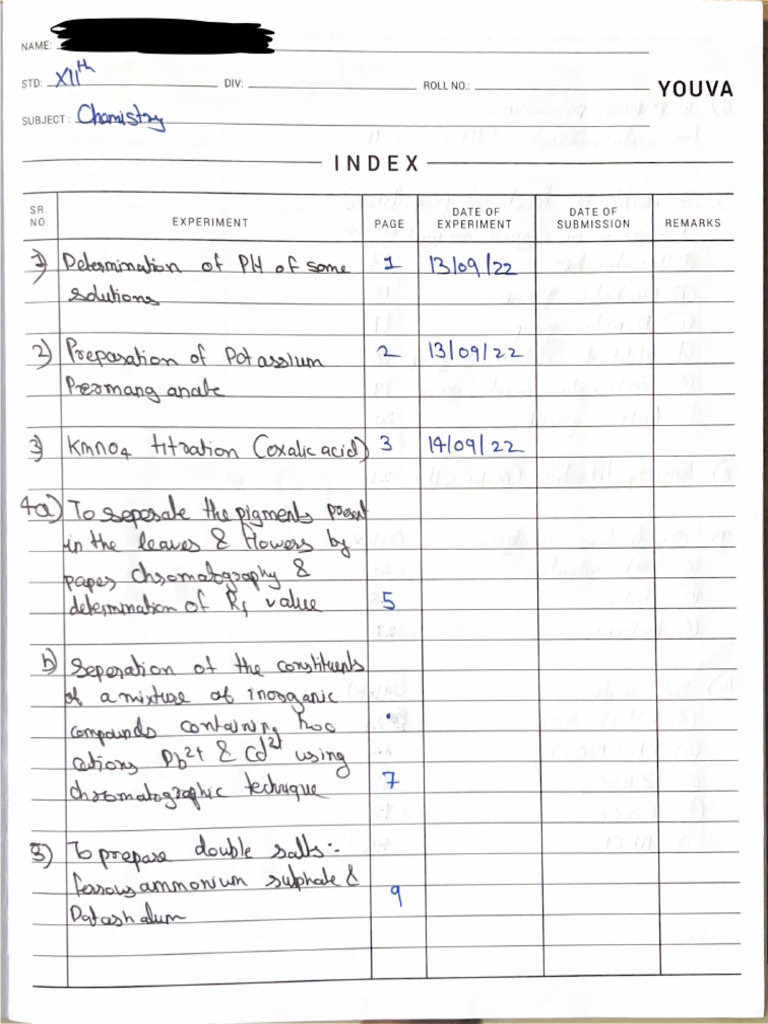 NAME:
STD: XIIth DIV: ROLL NO.: YOUVA
SUBJECT: Chemistry
INDEX
SR. NO. EXPERIMENT PAGE DATE OF EXPERIMENT DATE OF SUBMISSION REMARKS
1) Determination of PH of some 1 13/09/22
solutions
2) Preparation of Potassium 2 13/09/22
Permanganate
3) KmnO4 titration (oxalic acid) 3 14/09/22
4a) To seperate the pigments present
in the leaves & flowers by
paper chromatography &
determination of Rf value 5
b) Seperation of the constituents
of a mixture of inorganic
compounds containing two
cations Pb2+ & Cd2+ using
chromatographic technique 7
5) To prepare double salts:-
ferrous ammonium sulphate &
Potash alum 9